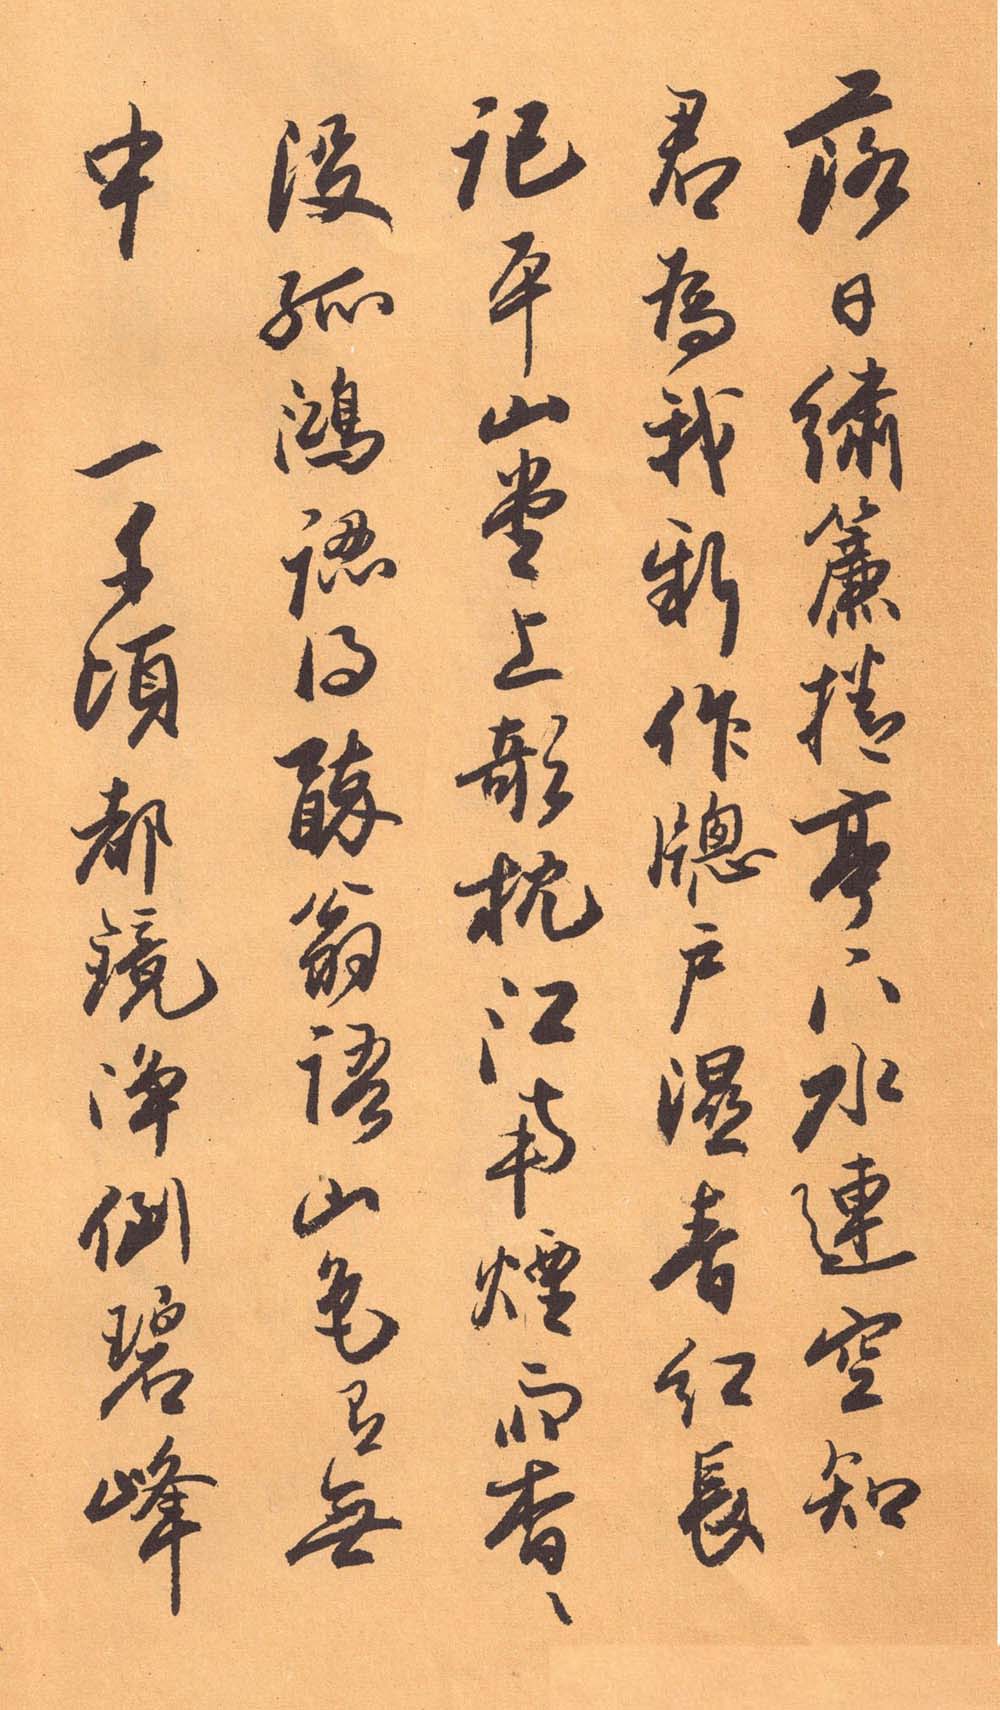 落日繡簾捲亭下水連空知
君為我新作牕戶濕青紅長
記平山堂上欹枕江南煙雨杳〻
沒孤鴻認得醉翁語山色有無
中　一千頃都鏡淨倒碧峰